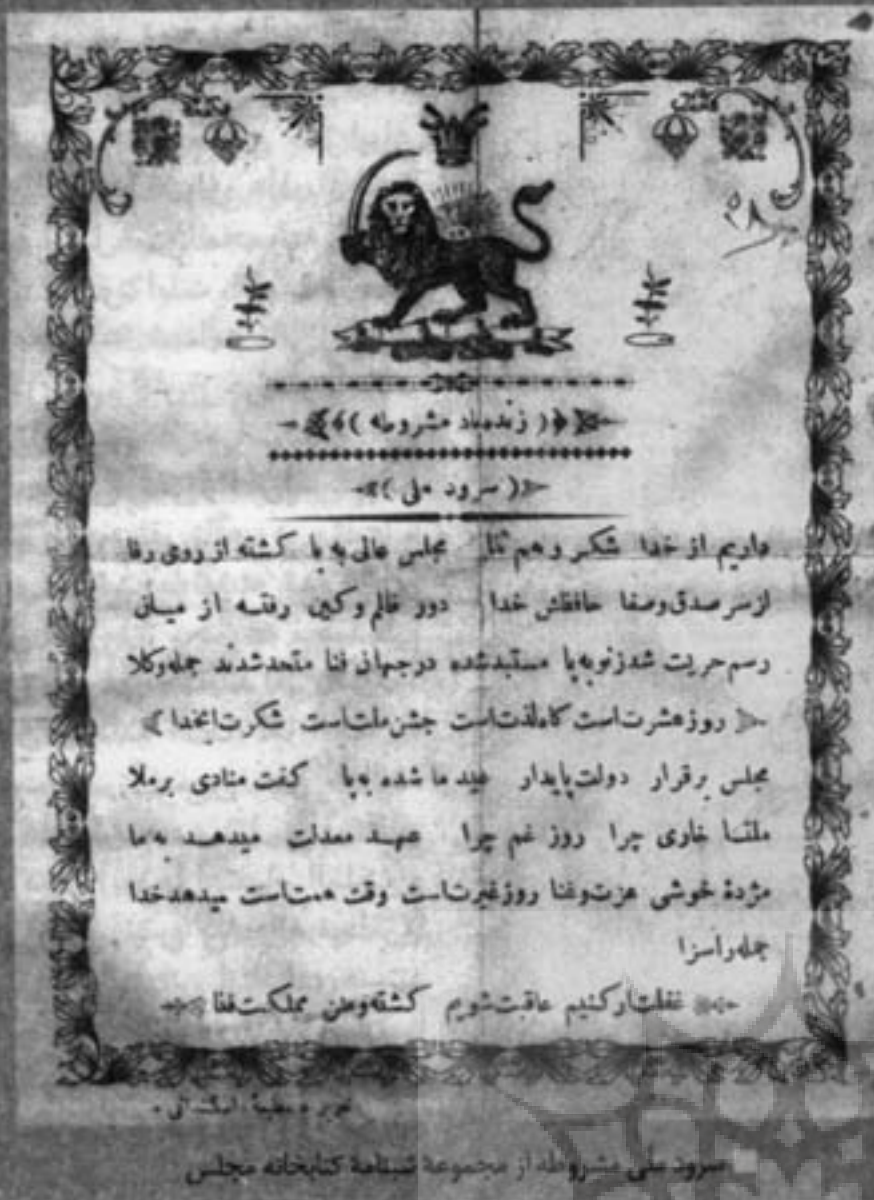 ۲۸
زنده‌باد مشروطه
سرود ملی
داریم از خدا شکر و هم ثنا مجلس عالی به پا کشته از روی رفا
از سر صدق و صفا حافظش خدا دور ظالم و کین رفته از میان
رسم حریت شد ز نو به پا مستبد شده در جهان فنا متحد شدند جمله وکلا
روز عشرت است کاه لذت است جشن ملت است شکرت ایخدا
مجلس برقرار دولت پایدار عید ما شده به پا کفت منادی برملا
ملتا خاری چرا روز غم چرا عهد معدلت میدهد به ما
مژدهٔ خوشی عزت و غنا روز غیرت است وقت همت است میدهد خدا
جمله را سزا
غفلت ار کنیم عاقبت شویم کشته وطن مملکت فنا
سرود ملی مشروطه از مجموعهٔ شبنامهٔ کتابخانه مجلس